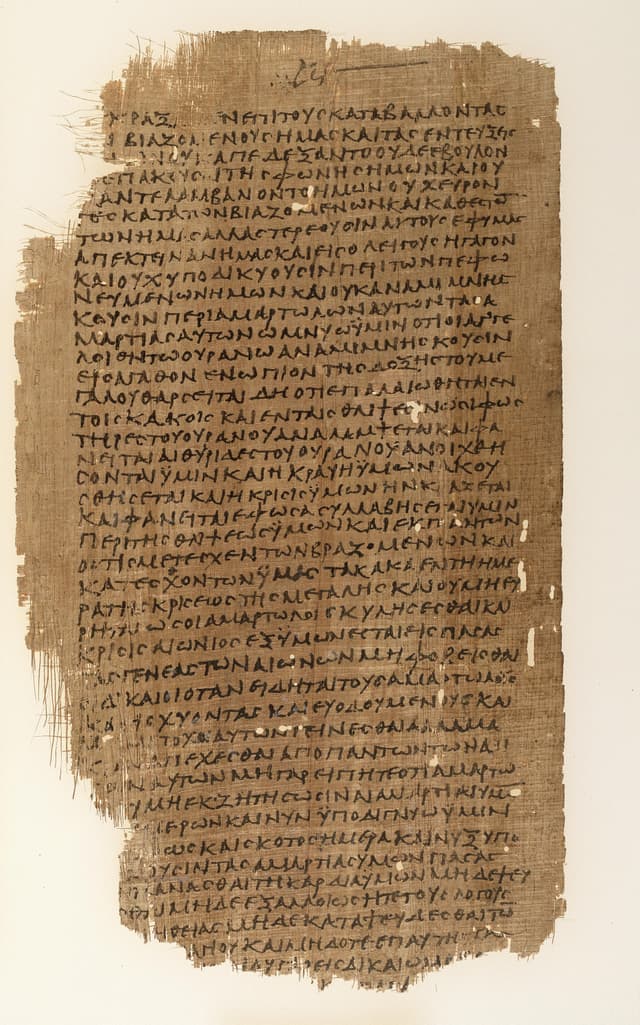 ΚΡΑΞ ΝΕΠΙΤΟΥΣΚΑΤΑΒΑΛΛΟΝΤΑΣ
ΒΙΑΖΟΜΕΝΟΥΣΗΜΑΣΚΑΙΤΑΣΕΝΤΕΥΞΕΙΣ
ΑΠΕΔΕΞΑΝΤΟΟΥΔΕΕΒΟΥΛΟΝ
ΕΠΑΚΟΥΣΑΙΤΗΣΦΩΝΗΣΗΜΩΝΚΑΙΟΥ
ΑΝΤΕΛΑΜΒΑΝΟΝΤΟΗΜΩΝΟΥΧΕΥΡΟΝ
ΤΕΣΚΑΤΑΤΩΝΒΙΑΖΟΜΕΝΩΝΚΑΙΚΑΤΕΣΘ
ΤΩΝΗΜΑΣΑΛΛΑΣΤΕΡΕΟΥΣΙΝΑΥΤΟΥΣΕΦΥΜΑΣ
ΑΠΕΚΤΕΙΝΑΝΗΜΑΣΚΑΙΕΙΣΟΛΕΙΓΟΥΣΗΓΑΓΟΝ
ΚΑΙΟΥΧΥΠΟΔΙΚΥΟΥΣΙΝΠΕΡΙΤΩΝΠΕΦΩ
ΝΕΥΜΕΝΩΝΗΜΩΝΚΑΙΟΥΚΑΝΑΜΙΜΝΗΣ
ΚΟΥΣΙΝΠΕΡΙΑΜΑΡΤΩΛΩΝΑΥΤΩΝΤΑΣΑ
ΜΑΡΤΙΑΣΑΥΤΩΝΟΜΝΥΩΫΜΙΝΟΤΙΟΙΑΓΓΕ
ΛΟΙΕΝΤΩΟΥΡΑΝΩΑΝΑΜΙΜΝΗΣΚΟΥΣΙΝ
ΕΙΣΑΓΑΘΟΝΕΝΩΠΙΟΝΤΗΣΔΟΞΗΣΤΟΥΜΕ
ΓΑΛΟΥΘΑΡΣΕΙΤΑΙΔΗΟΤΙΕΠΑΛΑΙΩΘΗΤΑΙΕΝ
ΤΟΙΣΚΑΚΟΙΣΚΑΙΕΝΤΑΙΣΘΛΙΨΕΣΙΝΩΣΙΦΩΣ
ΤΗΡΕΣΤΟΥΟΥΡΑΝΟΥΑΝΑΛΑΜΨΕΤΑΙΚΑΙΦΑ
ΝΕΙΤΑΙΑΙΘΥΡΙΔΕΣΤΟΥΟΥΡΑΝΟΥΑΝΟΙΧΘΗ
ΣΟΝΤΑΙΫΜΙΝΚΑΙΗΚΡΑΥΗΫΜΩΝΑΚΟΥ
ΣΘΗΣΕΤΑΙΚΑΙΗΚΡΙΣΙΣΫΜΩΝΗΝΚ ΑΖΕΤΑΙ
ΚΑΙΦΑΝΕΙΤΑΙΕΦΟΣΑΣΥΛΛΑΒΗΣΕΤΑΙΥΜΙΝ
ΠΕΡΙΤΗΣΘΛΙΨΕΩΣΫΜΩΝΚΑΙΕΚΠΑΝΤΩΝ
ΟΣΤΙΣΜΕΤΕΣΧΕΝΤΩΝΒΙΑΖΟΜΕΝΩΝΚΑΙ
ΚΑΤΕΣΘΟΝΤΩΝΫΜΑΣΤΑΚΑΚΑΕΝΤΗΗΜΕ
ΡΑΤΗΣΚΡΙΣΕΩΣΤΗΣΜΕΓΑΛΗΣΚΑΙΟΥΜΗΕΥ
ΡΗΤΑΙΩΣΟΙΑΜΑΡΤΩΛΟΙΣΚΥΛΗΣΕΣΘΑΙΚΑΙ
ΚΡΙΣΙΣΑΙΩΝΙΟΣΕΞΫΜΩΝΕΣΤΑΙΕΙΣΠΑΣΑΣ
ΤΑΣΓΕΝΕΑΣΤΩΝΑΙΩΝΩΝΜΗΦΟΒΕΙΣΘΑΙ
ΟΙΔΙΚΑΙΟΙΟΤΑΝΕΙΔΗΤΑΙΤΟΥΣΑΜΑΡΤΩΛΟΥΣ
ΚΑΤΙΣΧΥΟΝΤΑΣΚΑΙΕΥΟΔΟΥΜΕΝΟΥΣΚΑΙ
ΜΕΤΟΧΟΙΑΥΤΩΝΓΕΙΝΕΣΘΑΙΑΛΛΑΜΑ
ΑΝΑΠΕΧΕΣΘΑΙΑΠΟΠΑΝΤΩΝΤΩΝΑΔΙ
ΑΥΤΩΝΜΗΓΑΡΕΙΠΗΤΕΟΤΙΑΜΑΡΤΩ
ΟΥΜΗΕΚΖΗΤΗΣΩΣΙΝΑΙΑΜΑΡΤΙΑΙΥΜΩ
ΜΕΡΩΝΚΑΙΝΥΝΫΠΟΔΙΓΝΥΩΫΜΙΝ
ΩΣΚΑΙΣΚΟΤΟΣΗΜΕΡΑΚΑΙΝΥΞΥΠΟ
ΟΥΣΙΝΤΑΣΑΜΑΡΤΙΑΣΥΜΩΝΠΑΣΑΣ
ΠΛΑΝΑΣΘΑΙΤΗΚΑΡΔΙΑΥΜΩΝΜΗΔΕΨΕΥ
ΜΗΔΕΕΞΑΛΛΟΙΩΣΗΤΕΤΟΥΣΛΟΓΟΥΣ
ΘΕΙΑΣΜΗΔΕΚΑΤΑΨΕΥΔΕΣΘΑΙΤΩ
ΓΙΟΥΚΑΙΜΗΔΟΤΕΕΠΑΥΤΗ
ΔΙΚΑΙΩ